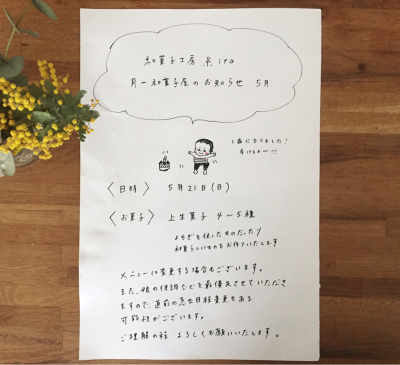 和菓子工房 糸 ito
月一和菓子屋のお知らせ 5月
1歳になりました!
〈日時〉 5月21日(日)
〈お菓子〉 上生菓子 4〜5種
よもぎを使ったものだったり
和菓子らしいものをお作りいたします
メニューは変更する場合もございます。
また、娘の体調などを最優先させていただき
ますので、直前の急な日程変更もある
可能性がございます。
ご理解の程 よろしくお願いいたします。